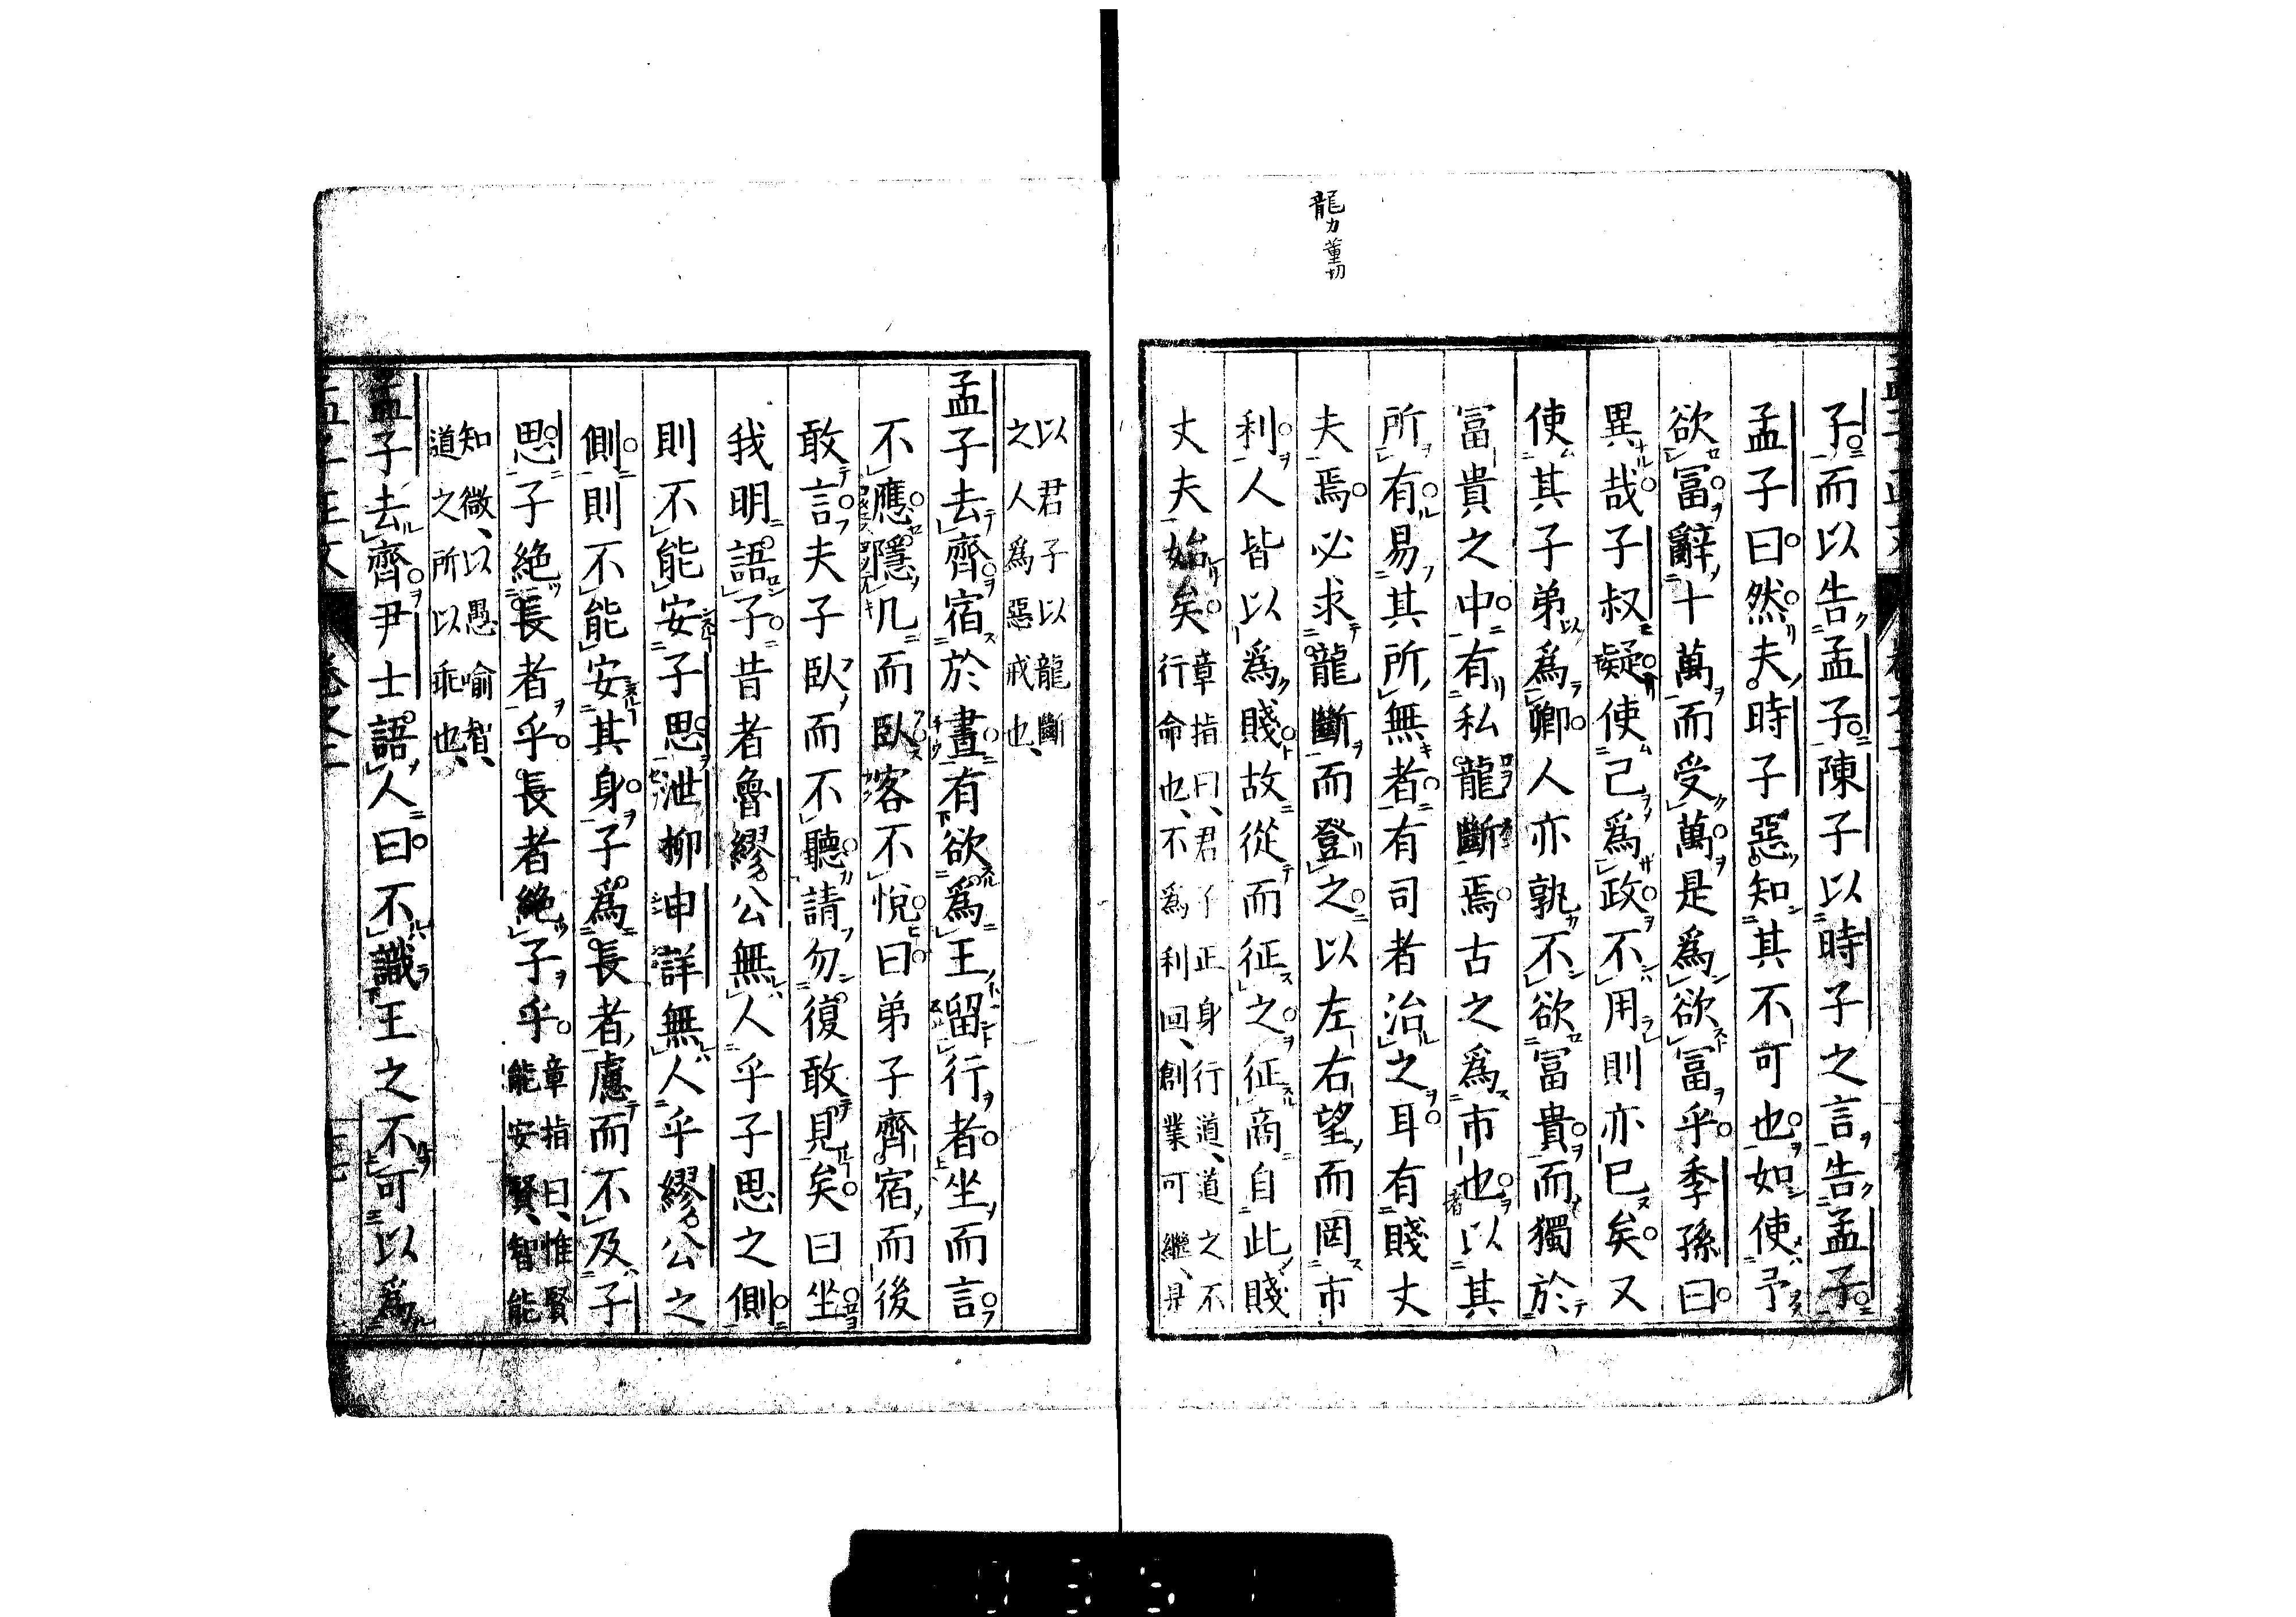 龍力董切
子而以告孟子陳子以時子之言告孟子
孟子曰然夫時子惡知其不可也如使予
欲冨辭十萬而受萬是爲欲冨乎季孫曰
異哉子叔疑使己爲政不用則亦已矣又
使其子弟爲卿人亦孰不欲冨貴而獨於
冨貴之中有私龍斷焉古之爲市也以其
所有易其所無者有司者治之耳有賤丈
夫焉必求龍斷而登之以左右望而罔市
利人皆以爲賤故從而征之征商自此賤
丈夫始矣
章指曰、君子正身行道、道之不
行命也、不爲利回、創業可繼、是
以君子以龍斷
之人爲惡戒也、
孟子去齊宿於晝有欲爲王留行者坐而言
不應隱几而臥客不悅曰弟子齊宿而後
敢言夫子臥而不聽請勿復敢見矣曰坐
我明語子昔者魯繆公無人乎子思之側
則不能安子思泄柳申詳無人乎繆公之
側則不能安其身子爲長者慮而不及子
思子絶長者乎長者絶子乎
章指曰、惟賢
能安賢、智能
知微、以愚喻智、
道之所以乖也、
孟子去齊尹士語人曰不識王之不可以爲